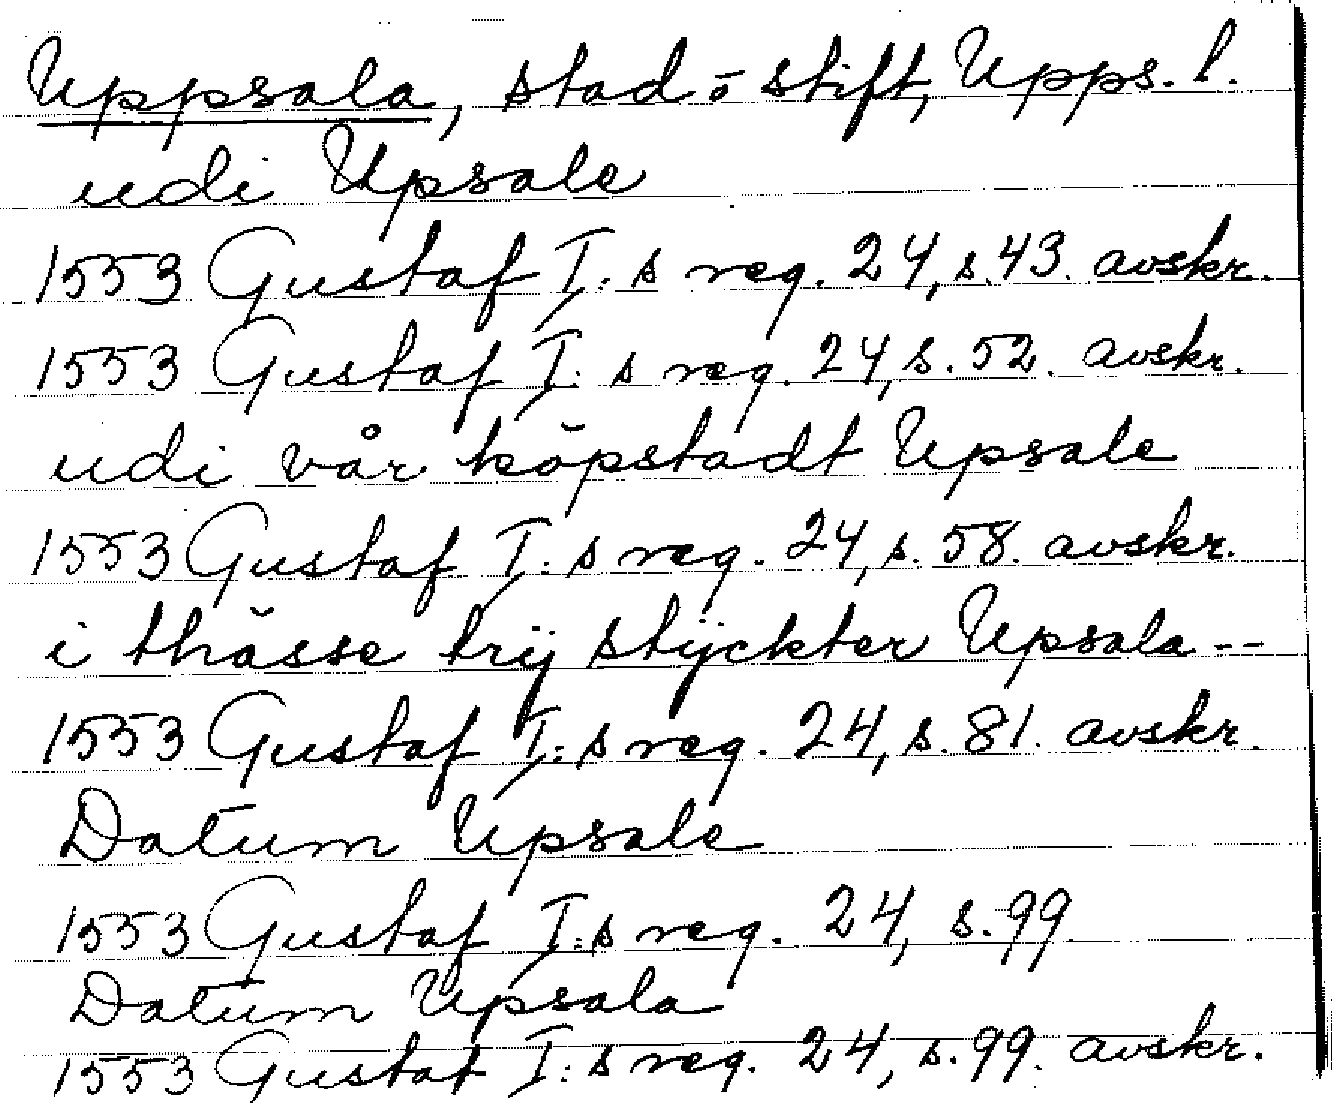 Uppsala, stad o stift, Upps. l.
udi Upsale
1553 Gustaf I:s reg. 24, s. 43. avskr.
1553 Gustaf I:s reg. 24, s. 52. avskr.
udi vår köpstadt Upsale
1553 Gustaf I:s reg. 24, s. 58. avskr.
i thässe trij stÿckter Upsala --
1553 Gustaf I:s reg. 24, s. 81. avskr.
Datum Upsale
1553 Gustaf I:s reg. 24, s. 99.
Datum Upsala
1553 Gustaf I:s reg. 24, s. 99. avskr.